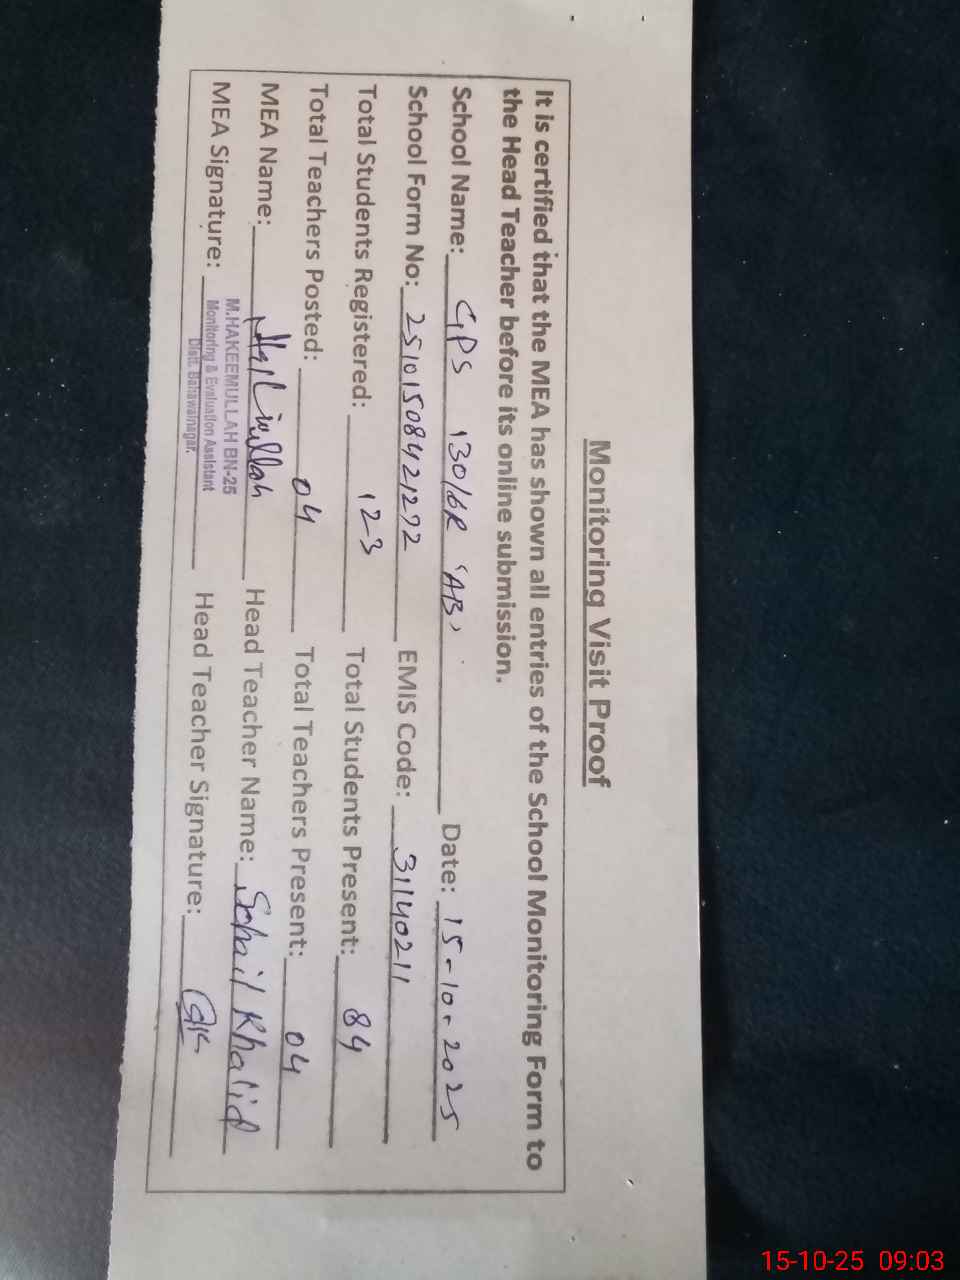 Monitoring Visit Proof
It is certified that the MEA has shown all entries of the School Monitoring Form to
the Head Teacher before its online submission.
School Name: GPS 130/6R 'AB' Date: 15-10-2025
School Form No: 25101508421272 EMIS Code: 31140211
Total Students Registered: 123 Total Students Present: 84
Total Teachers Posted: 04 Total Teachers Present: 04
MEA Name: Hakimullah Head Teacher Name: Sohail Khalid
MEA Signature: Head Teacher Signature:
M.HAKEEMULLAH BN-25
Monitoring & Evaluation Assistant
Distt. Bahawalnagar.
15-10-25 09:03